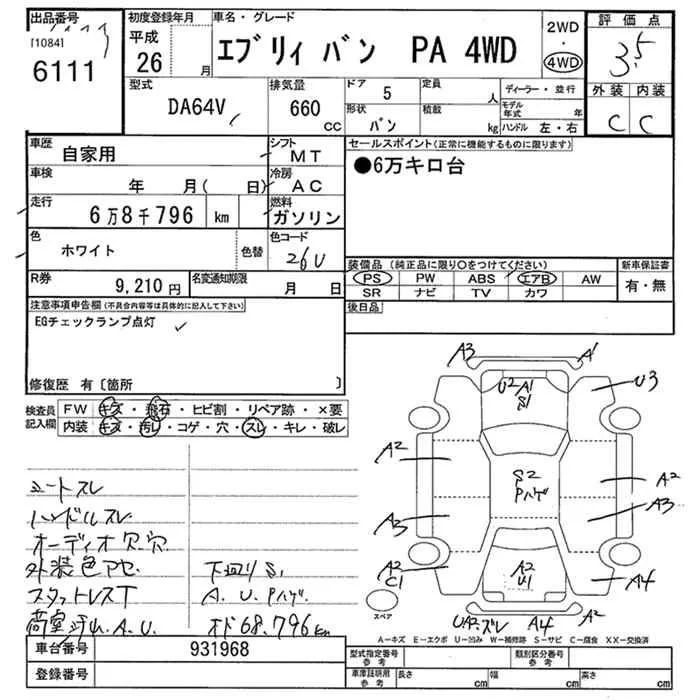 出品番号
[1084]
6111
初度登録年月
平成
26 月
車名・グレード
エブリィ バン PA 4WD
2WD
・
4WD
評価点
3.5
外装 内装
C C
型式
DA64V
排気量
660
cc
ドア 5
形状 バン
定員 人
積載 kg
ディーラー・並行
モデル年式 年
ハンドル 左・右
車歴 自家用
シフト MT
車検 年 月( 日)
冷房 AC
走行 6万8千796 km
燃料 ガソリン
色 ホワイト 色替
色コード 26U
R券 9,210円
名変通知期限 月 日
セールスポイント(正常に機能するものに限ります)
●6万キロ台
装備品 (純正品に限り○をつけてください)
PS PW ABS エアB AW
SR ナビ TV カワ
新車保証書
有・無
後日品
注意事項申告欄(不具合内容等は具体的に記入して下さい)
EGチェックランプ点灯
修復歴 有〔箇所 〕
検査員
記入欄
FW キズ・飛石・ヒビ割・リペア跡・×要
内装 キズ・汚レ・コゲ・穴・スレ・キレ・破レ
シートスレ
ハンドルスレ
オーディオ欠穴
外装色アセ 下廻りS1
スタットレスT A.U.Pハゲ
荷室汚れ.A.U. オド68,796km
A3 A1
U2 A1
S1
U3
A2
S2
Pハゲ
A2
A3 A3
A2
C1
A2
U1
A4
スペア
UA2ズレ A4 A2
A−キズ E−エクボ U−凹み W−補修跡 S−サビ C−腐食 XX−交換済
車台番号 931968
登録番号
型式指定番号
参考
類別区分番号
参考
車庫証明用
参考
長さ cm 幅 cm 高さ cm